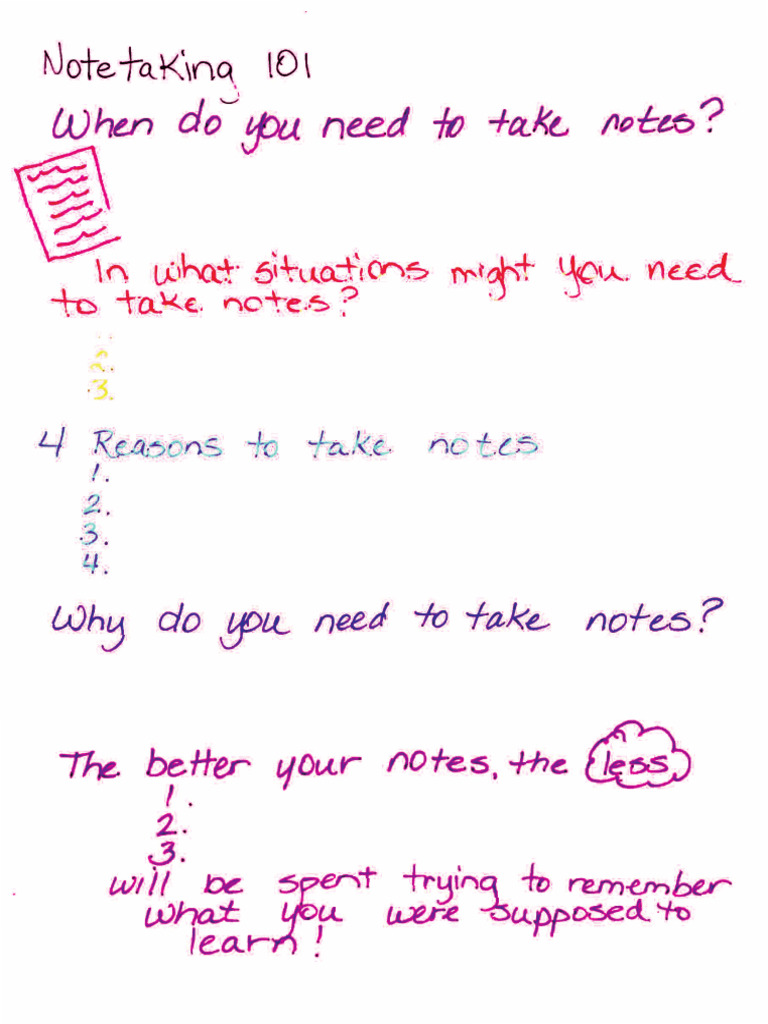 Notetaking 101
When do you need to take notes?
In what situations might you need
to take notes?
2.
3.
4 Reasons to take notes
1.
2.
3.
4.
Why do you need to take notes?
The better your notes, the less
1.
2.
3.
will be spent trying to remember
what you were supposed to
learn!